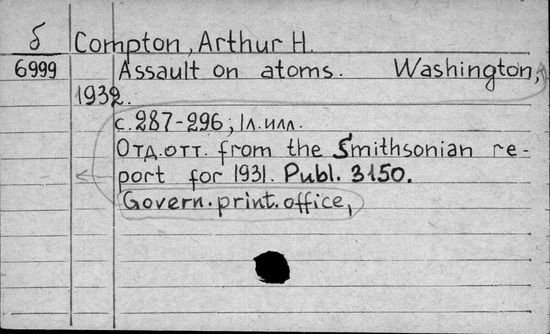 б Compton, Arthur H.
6999 Assault on atoms. Washington,
1932.
с.287-296, 1л.илл.
Отд.отт. from the Smithsonian re-
port for 1931. Publ. 3150.
Govern.print.office,